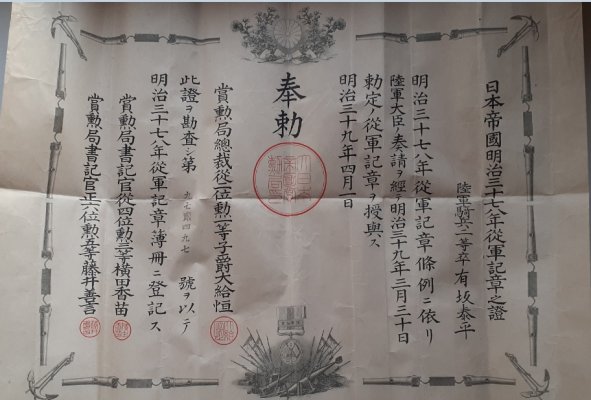 日本帝國明治三十七八年從軍記章之證
陸軍騎兵一等卒 有坂泰平
明治三十七八年從軍記章條例ニ依リ
陸軍大臣ノ奏請ヲ經テ明治三十九年三月三十日
勅定ノ從軍記章ヲ授與ス
明治三十九年四月一日
奉勅
賞勲局總裁從二位勲一等子爵大給恒
此證ヲ勘査シ第 號ヲ以テ
明治三十七八年從軍記章簿冊ニ登記ス
賞勲局書記官從四位勲三等横田香苗
賞勲局書記官正六位勲五等藤井善言